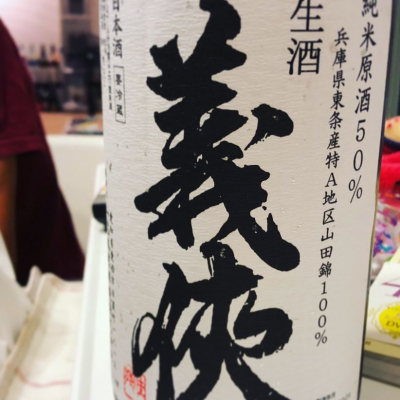 純米原酒50%
兵庫県東条産特A地区山田錦100%
生酒
義侠
日本酒
要冷蔵